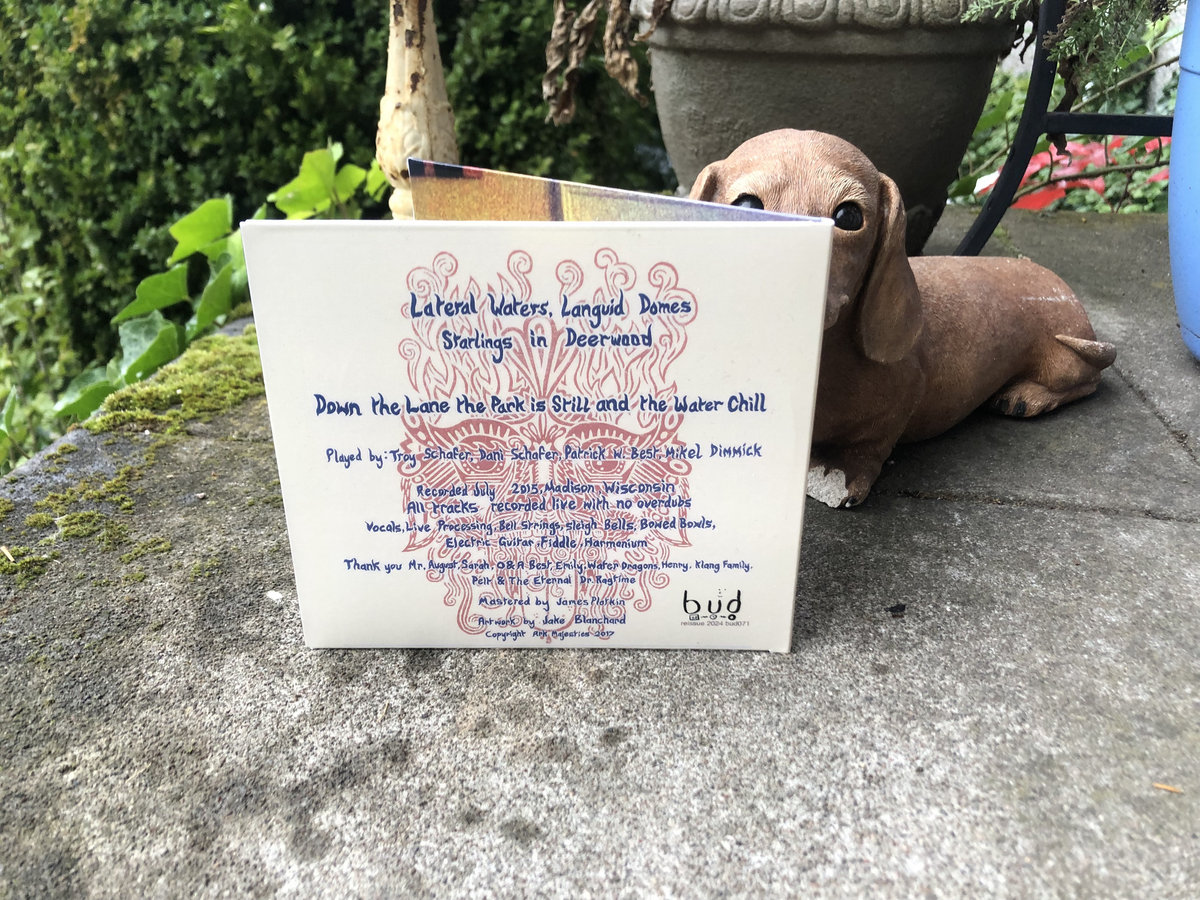 Lateral Waters, Languid Domes
Starlings in Deerwood
Down the Lane the Park is Still and the Water Chill
Played by: Troy Schafer, Dani Schafer, Patrick W. Best, Mikel Dimmick
Recorded July 2015, Madison, Wisconsin
All tracks recorded live with no overdubs
Vocals, Live Processing, Bell Strings, Sleigh Bells, Bowed Bowls,
Electric Guitar, Fiddle, Harmonium
Thank you Mr. August, Sarah, O & A Best, Emily, Water Dragons, Henry, Klang Family,
Pelt & The Eternal Dr. Ragtime
Mastered by James Plotkin
Artwork by Jake Blanchard
Copyright Ark Majesties 2017
bud
reissue 2024 bud071